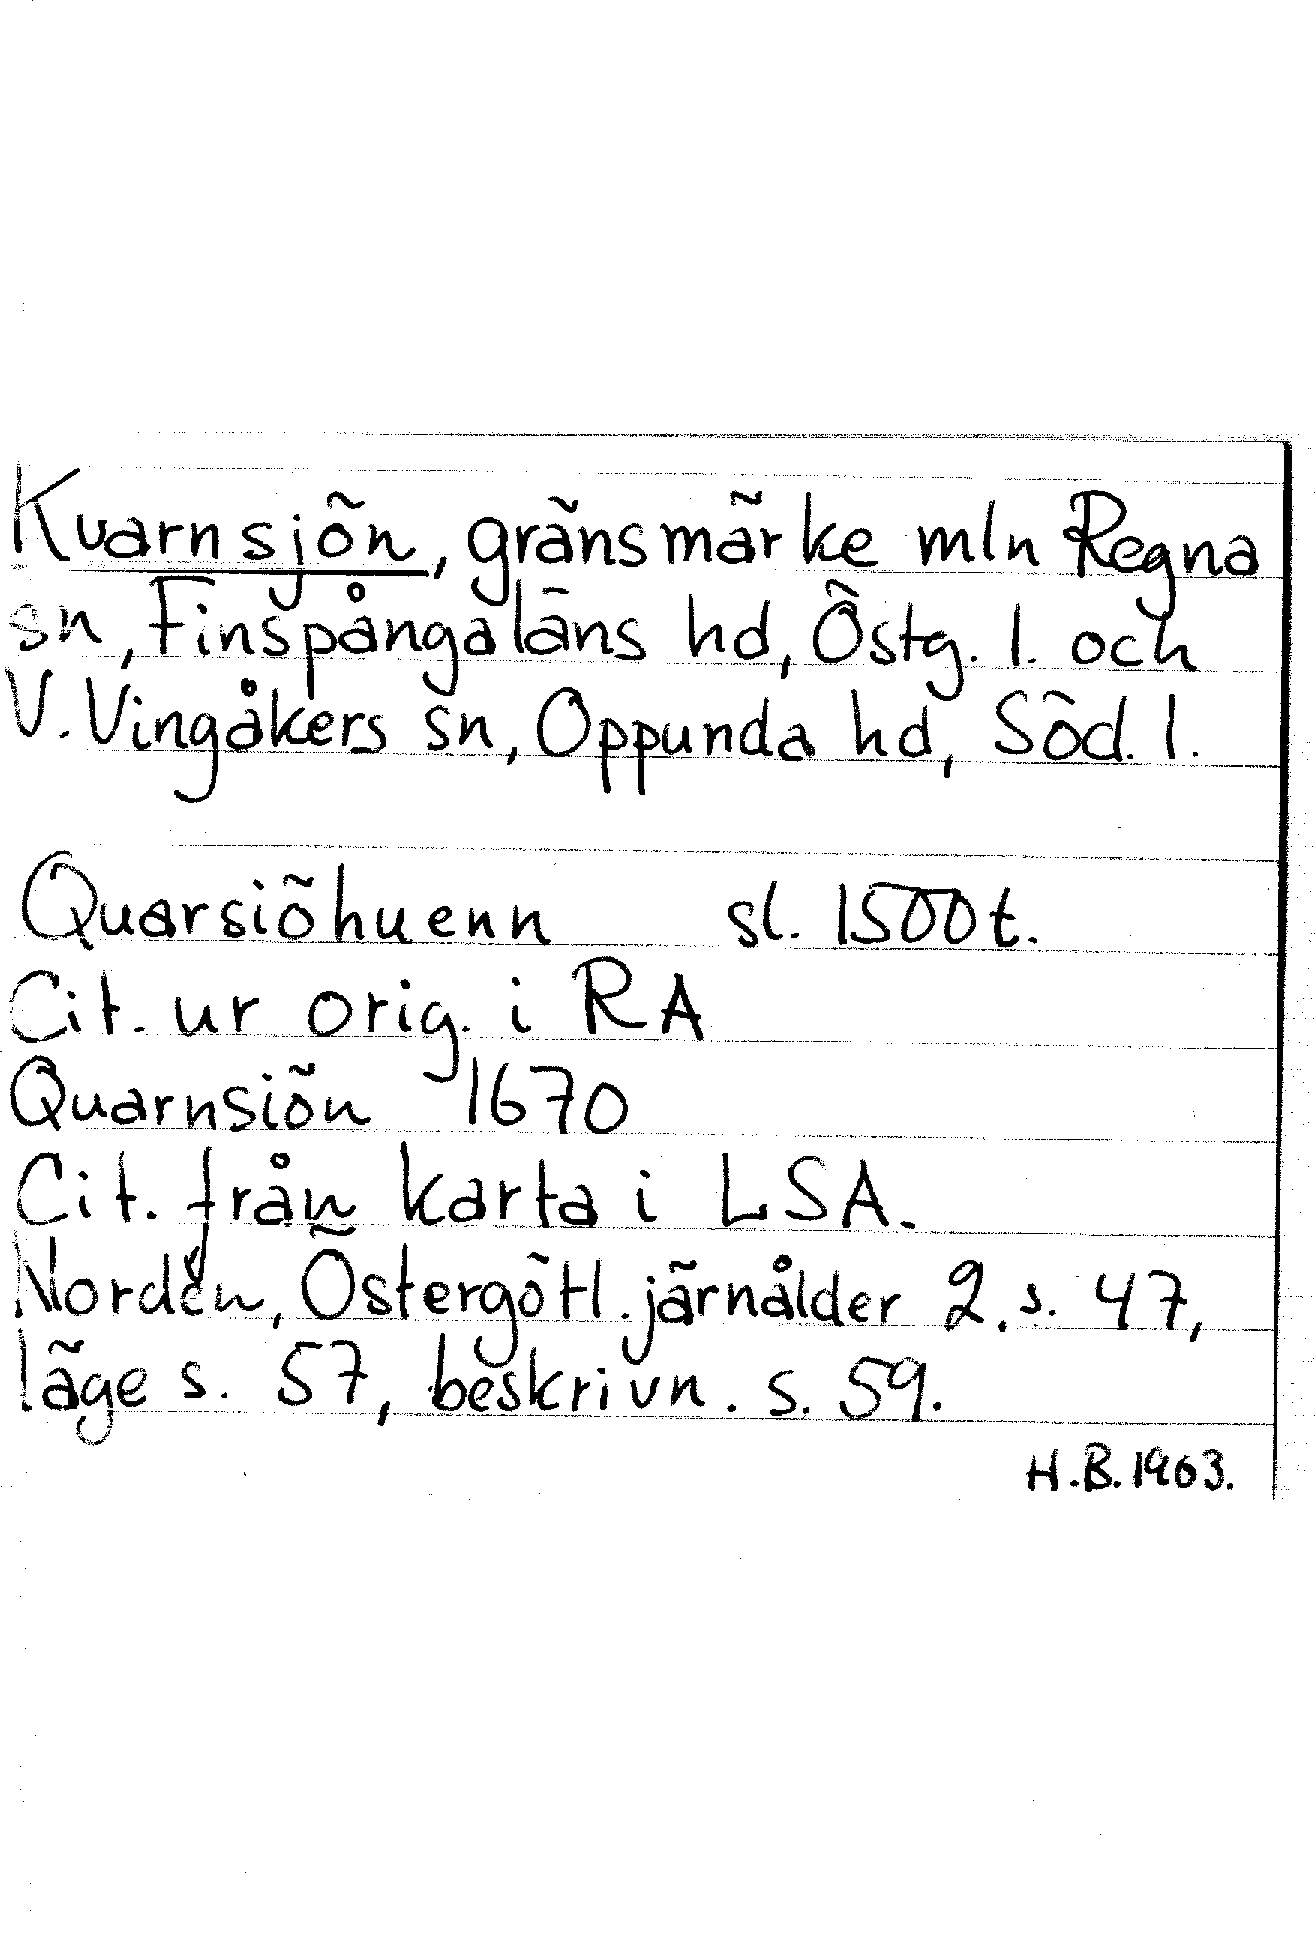 Kvarnsjön, gränsmärke mln Regna
sn, Finspångaläns hd, Östg. l. och
V. Vingåkers sn, Oppunda hd, Söd. l.
Quarsiöhuenn sl. 1500 t.
Cit. ur orig. i RA
Quarnsiön 1670
Cit. från karta i LSA.
Nordén, Östergötl. järnålder 2. s. 47,
läge s. 57, beskrivn. s. 59.
H.B. 1963.